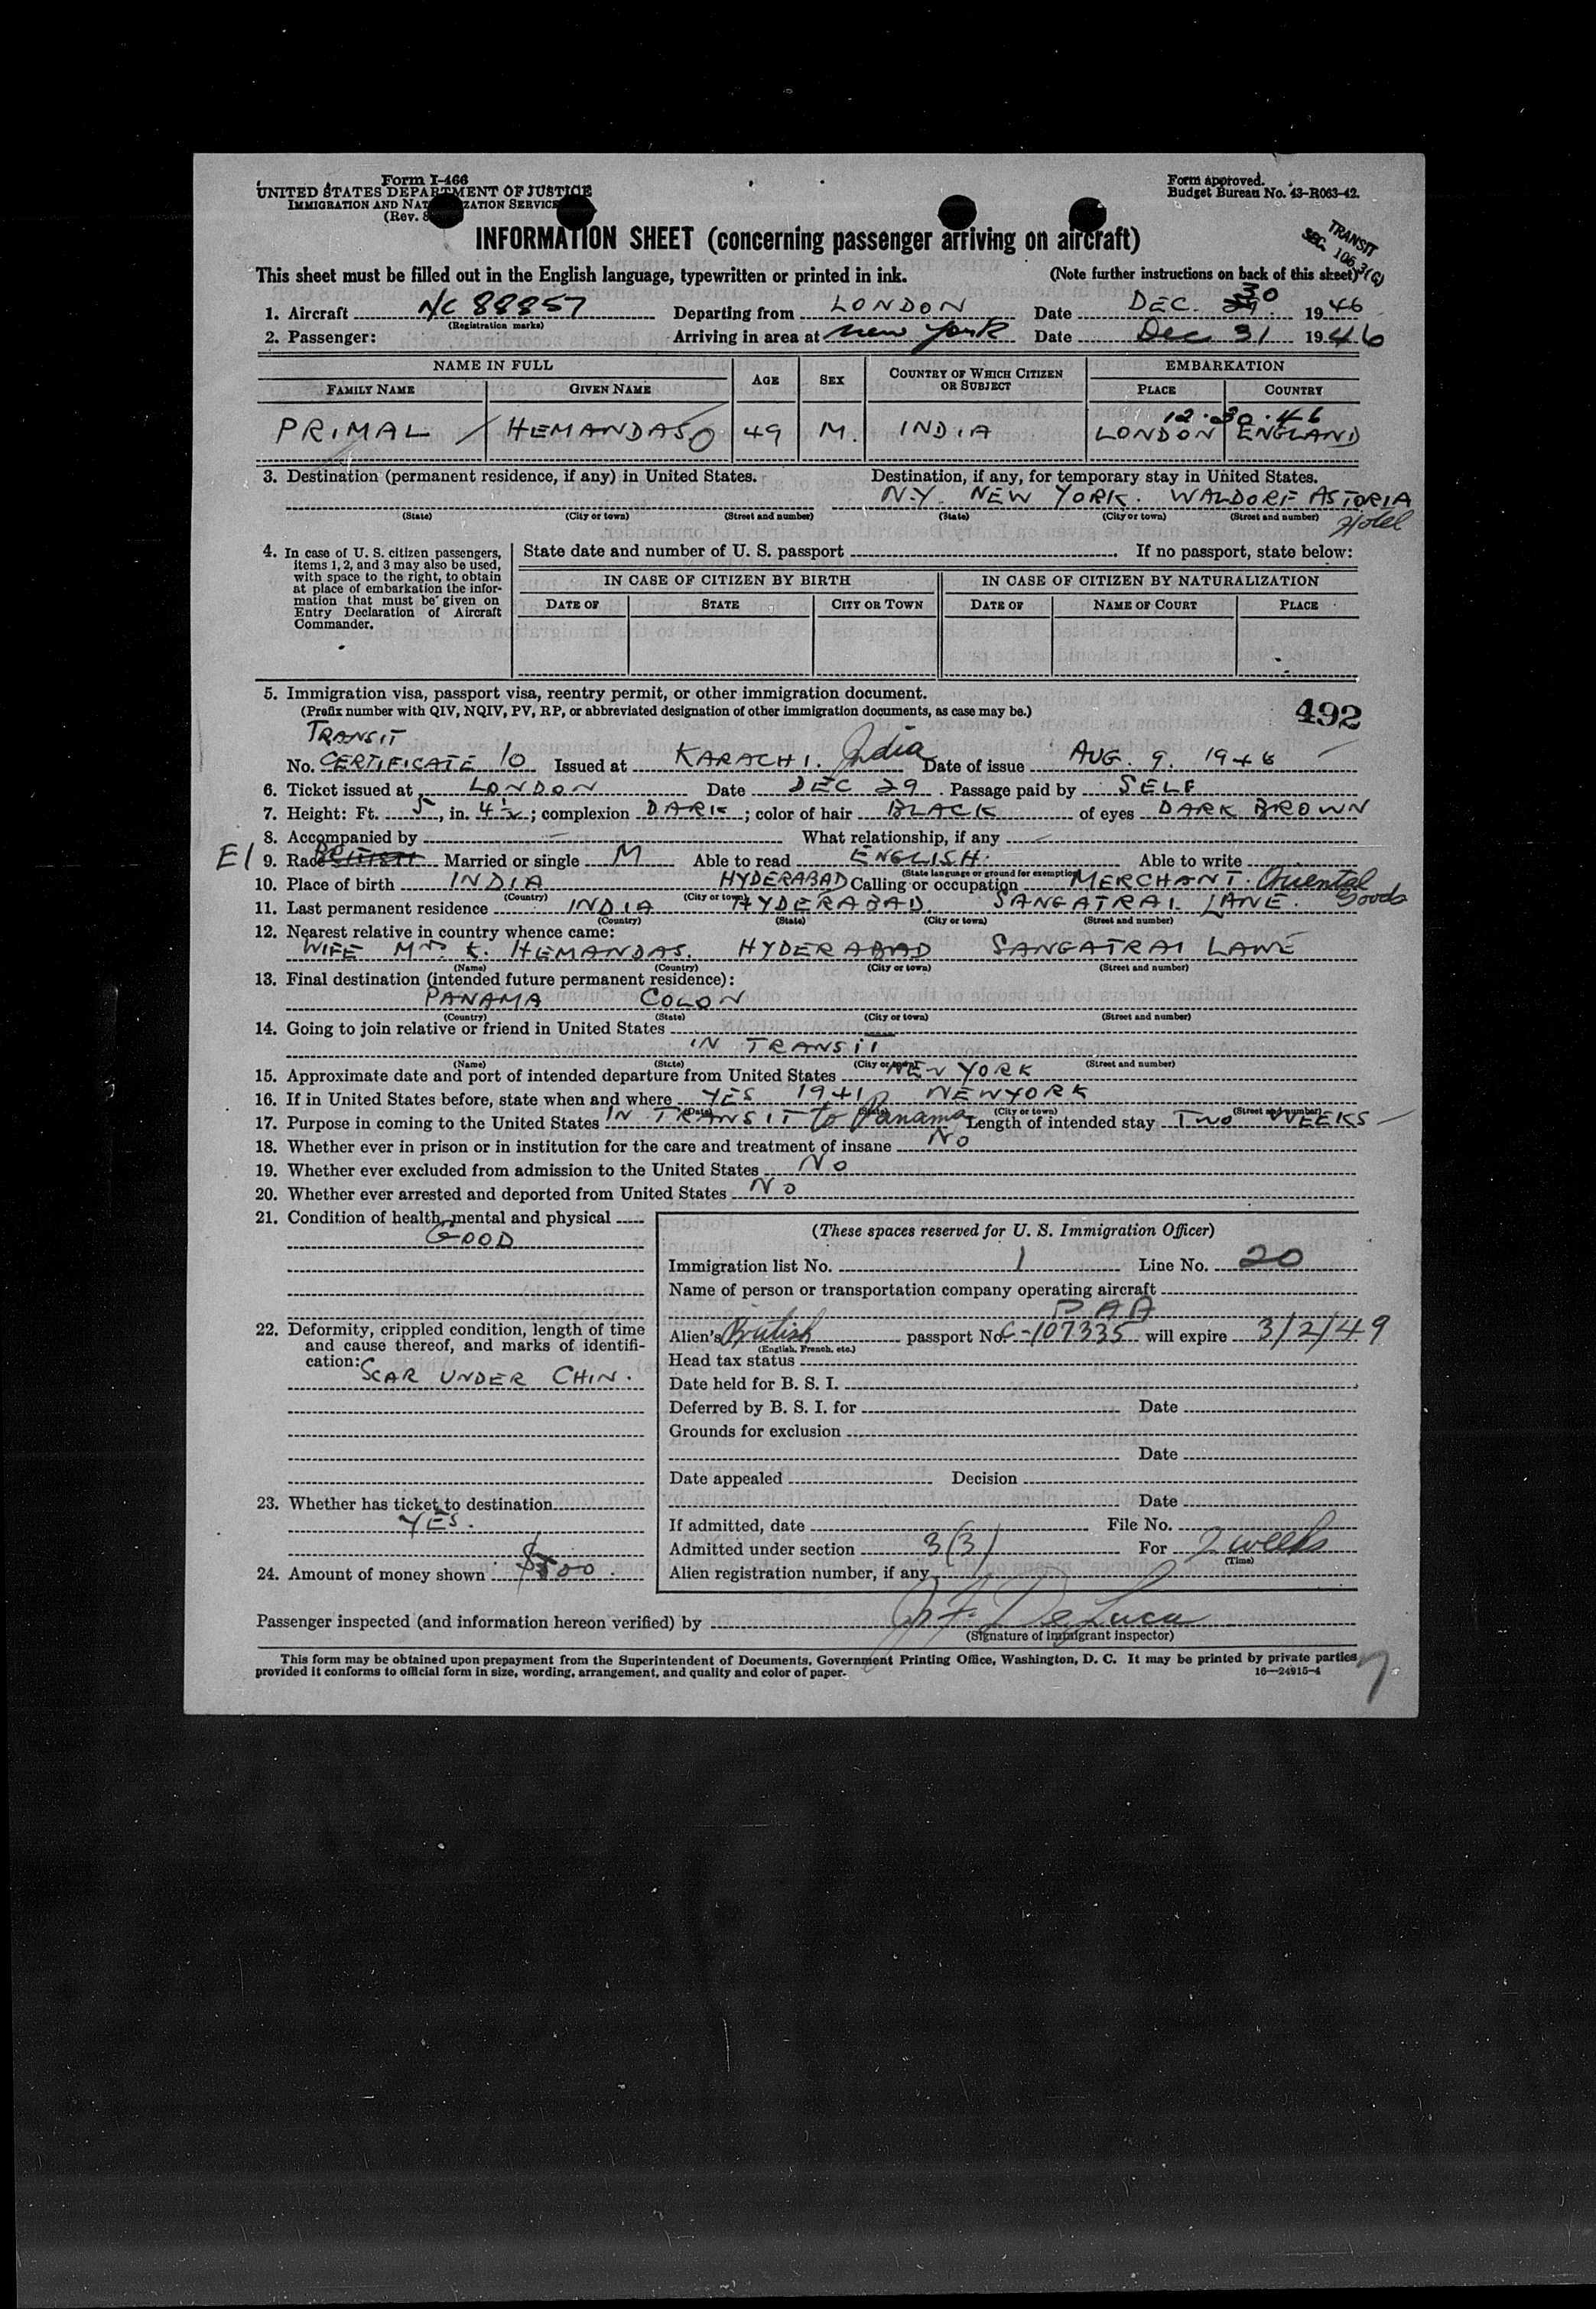 Form I-466
UNITED STATES DEPARTMENT OF JUSTICE
IMMIGRATION AND NATURALIZATION SERVICE
(Rev.
Form approved.
Budget Bureau No. 43-R063-42.
TRANSIT
SEC. 106.3(G)
INFORMATION SHEET (concerning passenger arriving on aircraft)
This sheet must be filled out in the English language, typewritten or printed in ink. (Note further instructions on back of this sheet)
1. Aircraft NC 88857 Departing from LONDON Date DEC. 30 1946
(Registration marks)
2. Passenger: Arriving in area at New York Date Dec 31 1946
NAME IN FULL AGE SEX COUNTRY OF WHICH CITIZEN OR SUBJECT EMBARKATION
FAMILY NAME GIVEN NAME PLACE COUNTRY
12.30.46
PRIMAL HEMANDAS 49 M. INDIA LONDON ENGLAND
3. Destination (permanent residence, if any) in United States. Destination, if any, for temporary stay in United States.
N.Y. NEW YORK. WALDORF ASTORIA
(State) (City or town) (Street and number) (State) (City or town) (Street and number) Hotel
4. In case of U. S. citizen passengers, items 1, 2, and 3 may also be used, with space to the right, to obtain at place of embarkation the information that must be given on Entry Declaration of Aircraft Commander.
State date and number of U. S. passport If no passport, state below:
IN CASE OF CITIZEN BY BIRTH IN CASE OF CITIZEN BY NATURALIZATION
DATE OF STATE CITY OR TOWN DATE OF NAME OF COURT PLACE
5. Immigration visa, passport visa, reentry permit, or other immigration document.
(Prefix number with QIV, NQIV, PV, RP, or abbreviated designation of other immigration documents, as case may be.)
492
TRANSIT
No. CERTIFICATE 10 Issued at KARACHI. India Date of issue AUG. 9. 1946
6. Ticket issued at LONDON Date DEC 29. Passage paid by SELF
7. Height: Ft. 5, in. 4½; complexion DARK; color of hair BLACK of eyes DARK BROWN
8. Accompanied by What relationship, if any
EI 9. Race Married or single M Able to read ENGLISH. Able to write
(State language or ground for exemption)
10. Place of birth INDIA HYDERABAD Calling or occupation MERCHANT. Oriental Goods
(Country) (City or town)
11. Last permanent residence INDIA HYDERABAD. SANGATRAI LANE.
(Country) (State) (City or town) (Street and number)
12. Nearest relative in country whence came:
WIFE Mrs K. HEMANDAS. HYDERABAD SANGATRAI LANE
(Name) (Country) (City or town) (Street and number)
13. Final destination (intended future permanent residence):
PANAMA COLON
(Country) (State) (City or town) (Street and number)
14. Going to join relative or friend in United States
IN TRANSIT
(Name) (State) (City or town) (Street and number)
15. Approximate date and port of intended departure from United States NEW YORK
16. If in United States before, state when and where YES 1941 NEWYORK
(Date) (State) (City or town) (Street and number)
17. Purpose in coming to the United States IN TRANSIT to Panama Length of intended stay TWO WEEKS
18. Whether ever in prison or in institution for the care and treatment of insane NO
19. Whether ever excluded from admission to the United States NO
20. Whether ever arrested and deported from United States NO
21. Condition of health, mental and physical
GOOD
22. Deformity, crippled condition, length of time and cause thereof, and marks of identification:
SCAR UNDER CHIN.
23. Whether has ticket to destination
YES.
24. Amount of money shown $500.
(These spaces reserved for U. S. Immigration Officer)
Immigration list No. 1 Line No. 20
Name of person or transportation company operating aircraft
PAA
Alien's British passport No. C-107335 will expire 3/2/49
(English, French, etc.)
Head tax status
Date held for B. S. I.
Deferred by B. S. I. for Date
Grounds for exclusion
Date
Date appealed Decision
Date
If admitted, date File No.
Admitted under section 3(3) For 2 weeks
(Time)
Alien registration number, if any
Passenger inspected (and information hereon verified) by De Luca
(Signature of immigrant inspector)
This form may be obtained upon prepayment from the Superintendent of Documents, Government Printing Office, Washington, D. C. It may be printed by private parties
provided it conforms to official form in size, wording, arrangement, and quality and color of paper.
16—24915-4
7